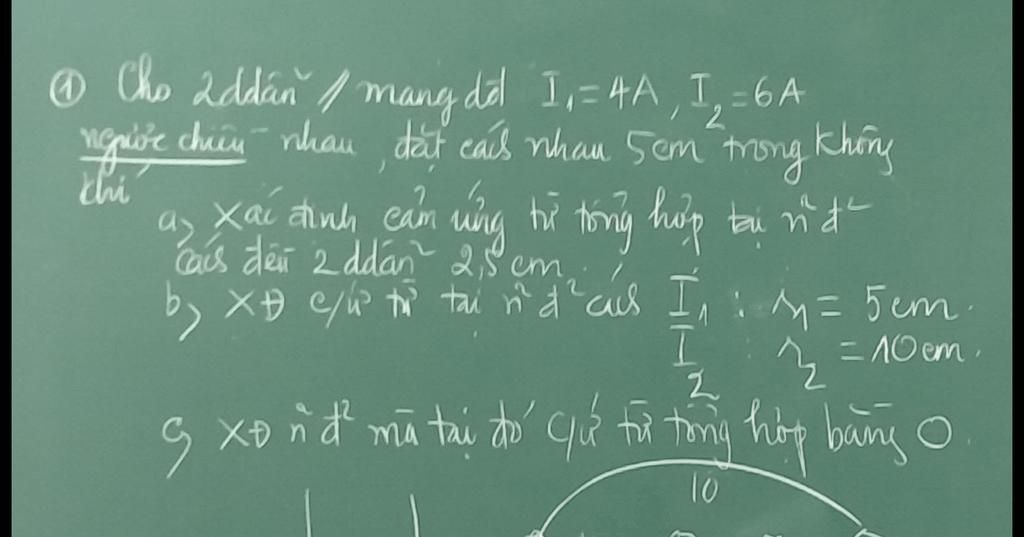 ① Cho 2 ddẫn // mang dđ I₁ = 4A, I₂ = 6A
ngược chiều nhau, đặt cách nhau 5cm trong không
khí
a, Xác định cảm ứng từ tổng hợp tại nơi đ²
cách đều 2 ddẫn 2,5 cm.
b, XĐ c/ứ từ tại n² đ² cách I₁ : r₁ = 5cm.
I₂ : r₂ = 10cm.
c, XĐ n² đ² mà tại đó c/ứ từ tổng hợp bằng 0.
10